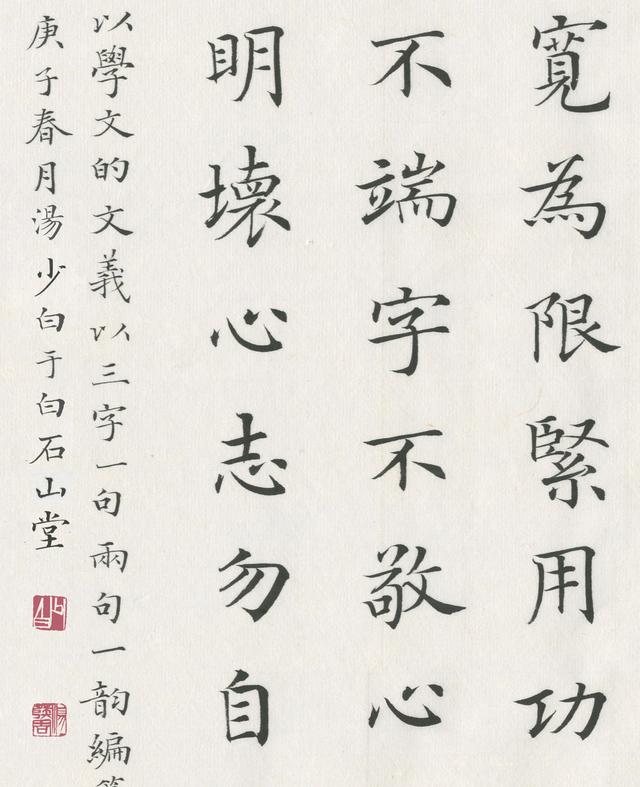 寬為限緊用功
不端字不敬心
明壞心志勿自
以學文的文義以三字一句兩句一韵編
庚子春月湯少白于白石山堂